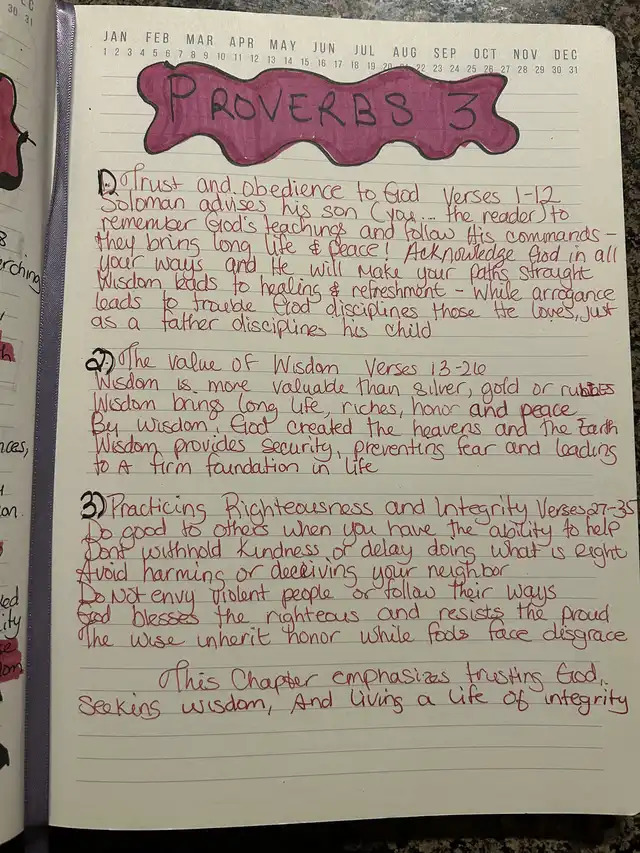 EC
30 31
JAN FEB MAR APR MAY JUN JUL AUG SEP OCT NOV DEC
1 2 3 4 5 6 7 8 9 10 11 12 13 14 15 16 17 18 19 20 21 22 23 24 25 26 27 28 29 30 31
PROVERBS 3
1) Trust and obedience to God Verses 1-12
Soloman advises his son (you... the reader) to
remember God's teachings and follow His commands -
they bring long life & peace! Acknowledge God in all
your ways and He will make your paths straught
Wisdom leads to healing & refreshment - While arrogance
leads to trouble God disciplines those He loves, just
as a father disciplines his child
2) The value of Wisdom Verses 13-26
Wisdom is more valuable than silver, gold or rubies
Wisdom brings long life, riches, honor and peace
By wisdom, God created the heavens and the Earth
Wisdom provides security, preventing fear and leading
to a firm foundation in life
3) Practicing Righteousness and Integrity Verses 27-35
Do good to others when you have the ability to help
Dont withhold kindness or delay doing what is Right
Avoid harming or deceiving your neighbor
Do Not envy violent people or follow their ways
God blesses the righteous and resists the proud
The wise inherit honor while fools face disgrace
This Chapter emphasizes trusting God,
Seeking wisdom, And living a life of integrity